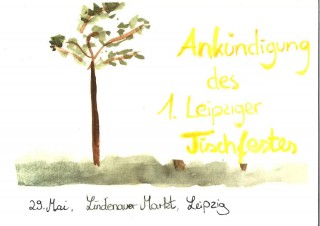 Ankündigung
des
1. Leipziger
Tischfestes
29. Mai, Lindenauer Markt, Leipzig